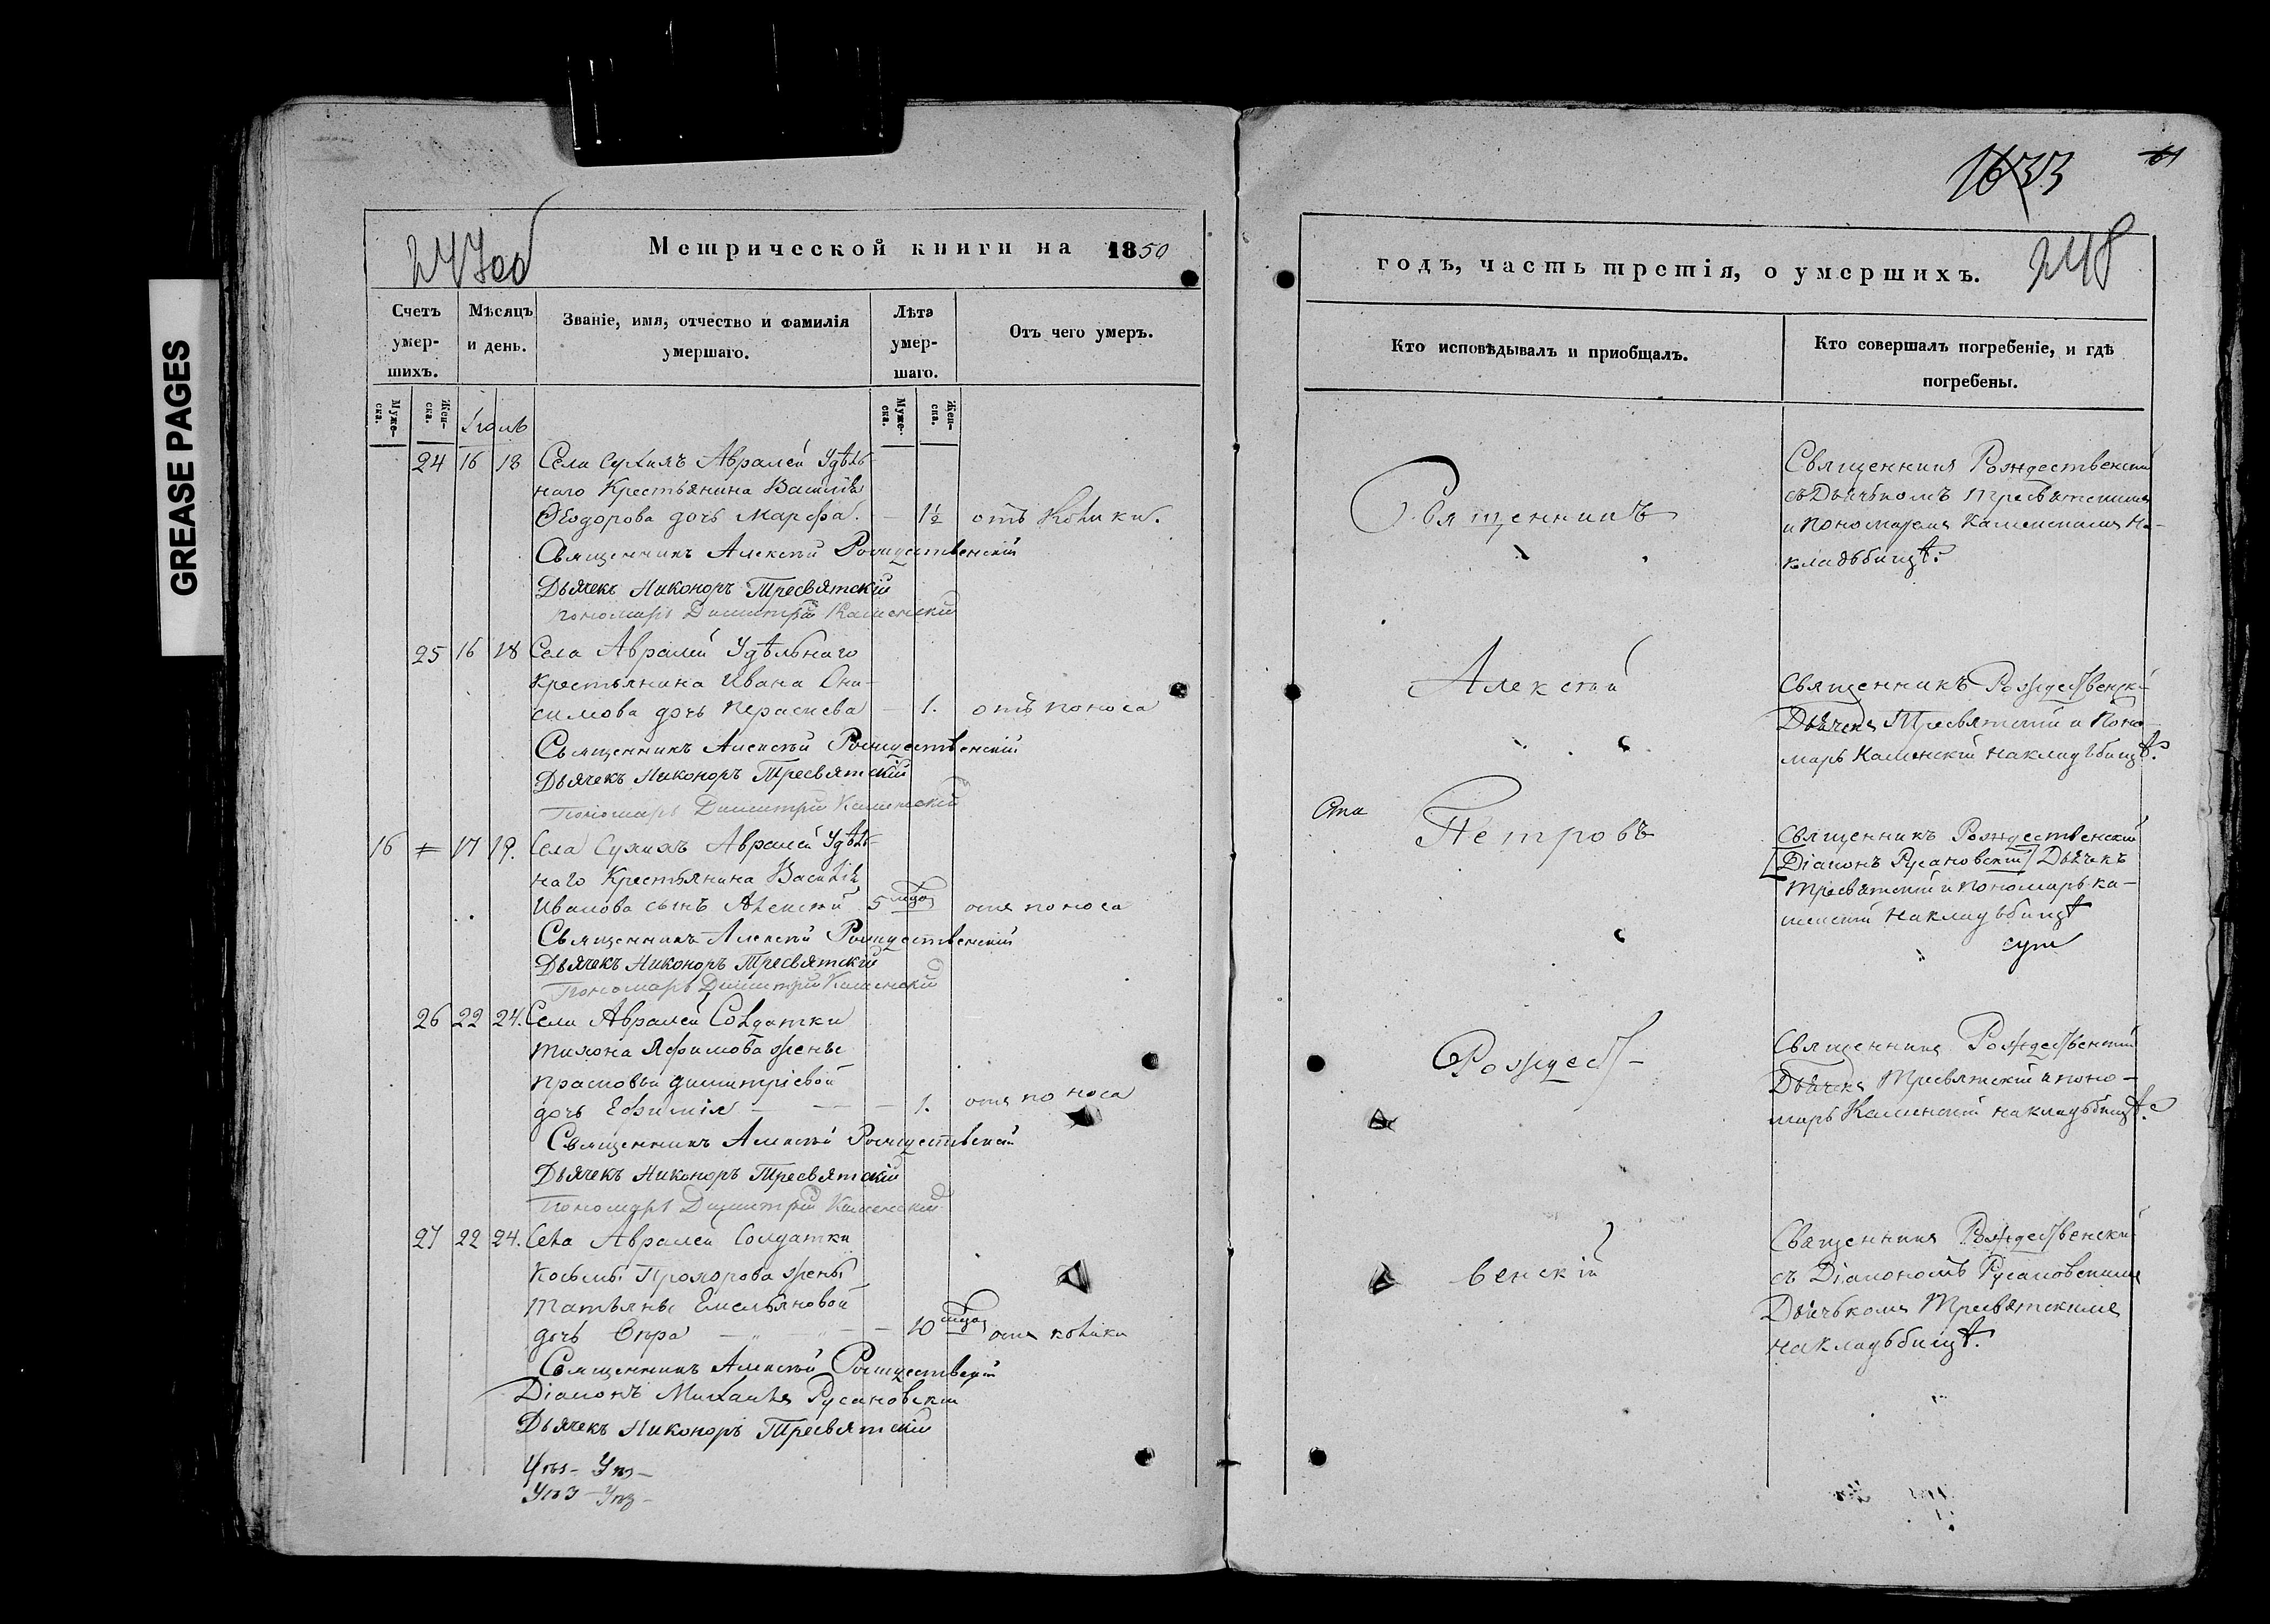 GREASE PAGES
247об
Метрической книги на 1850
Счетъ умер-шихъ.
Мѣсяцъ и день.
Званіе, имя, отчество и фамилія умершаго.
Лѣта умер-шаго.
Отъ чего умеръ.
Муже-ска.
Жен-ска.
Іюль
Муже-ска.
Жен-ска.
24 16 18 Села Сухихъ Авралей Удѣль-
наго Крестьянина Василія
Ѳеодорова дочь Марѳа. — 1½ отъ колики.
Священникъ Алексѣй Рождественскій
Дьячекъ Никоноръ Тресвятскій
Пономарь Димитрій Каменскій
25 16 18 Села Авралей Удѣльнаго
Крестьянина Ивана Они-
симова дочь Параскева — 1. отъ поноса
Священникъ Алексѣй Рождественскій
Дьячекъ Никоноръ Тресвятскій
Пономарь Димитрій Каменскій
16 17 19. Села Сухихъ Авралей Удѣль-
наго Крестьянина Василія
Иванова сынъ Алексѣй 5 отъ поноса
Священникъ Алексѣй Рождественскій
Дьячекъ Никоноръ Тресвятскій
Пономарь Димитрій Каменскій
26 22 24. Села Авралей Солдатки
Тихона Яфимова жены
Прасковьи Димитріевой
дочь Ефимія — — — 1. отъ поноса
Священникъ Алексѣй Рождественскій
Дьячекъ Никоноръ Тресвятскій
Пономарь Димитрій Каменскій
27 22 24. Села Авралей Солдатки
Косьмы Прохорова жены
Татьяны Емельяновой
дочь — 10 отъ колики
Священникъ Алексѣй Рождественскій
Діаконъ Михаилъ Русановскій
Дьячекъ Никоноръ Тресвятскій
1633
61
годъ, часть третія, о умершихъ.
248
Кто исповѣдывалъ и приобщалъ.
Кто совершалъ погребеніе, и гдѣ погребены.
Священникъ
Алексѣй
Петровъ
Рождест-
венскій
Священникъ Рождественскій
съ Дьячкомъ Тресвятскимъ
и Пономаремъ Каменскимъ на
кладьбищѣ.
Священникъ Рождественскій
Дьячекъ Тресвятскій и Поно-
марь Каменскій на кладьбищѣ.
Священникъ Рождественскій
Діаконъ Русановскій Дьячекъ
Тресвятскій и Пономарь Ка-
менскій на кладьбищѣ
Священникъ Рождественскій
Дьячекъ Тресвятскій и Поно-
марь Каменскій на кладьбищѣ.
Священникъ Рождественскій
съ Діакономъ Русановскимъ
Дьячькомъ Тресвятскимъ
на кладьбищѣ.